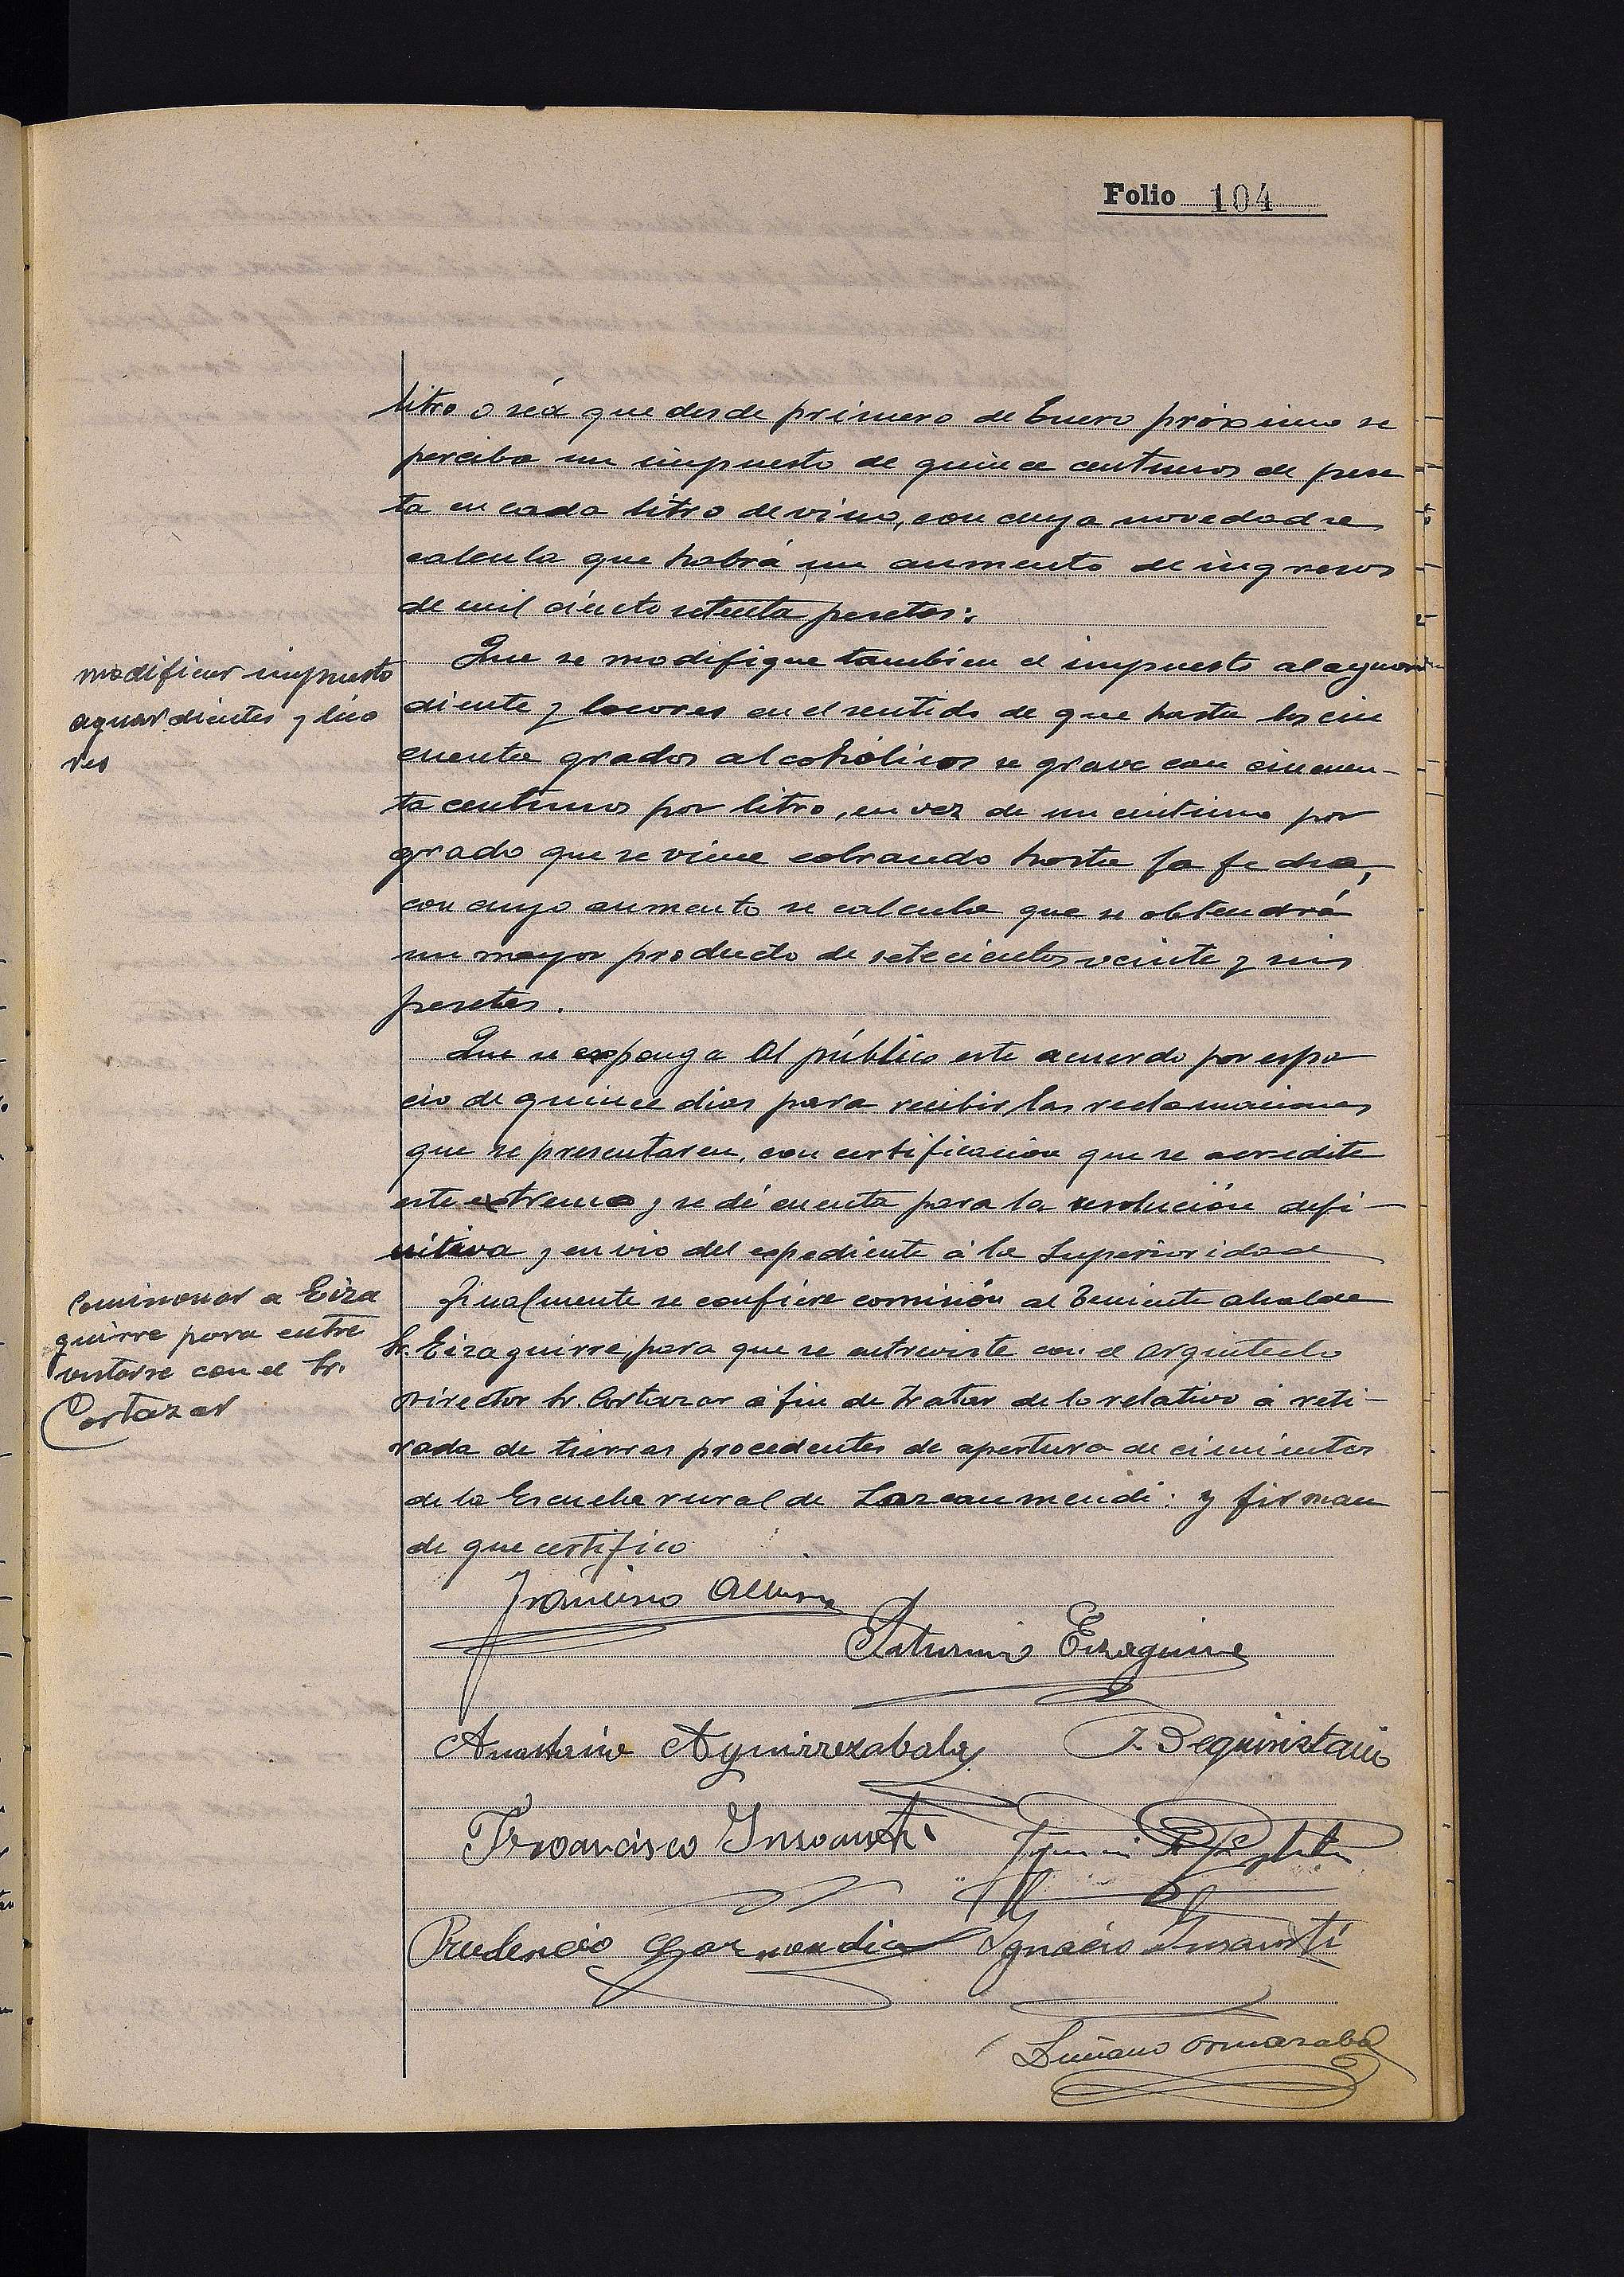 Folio 104
litro o séa que desde primero de Enero próximo se
perciba un impuesto de quince centimos de pese
ta en cada litro de vino, con cuya novedad se
calcula que habrá un aumento de ingresos
de mil ciento setenta pesetas:
modificar impuesto
aguardientes y lico
res
Que se modifique tambien el impuesto al aguar
diente y licores en el sentido de que hasta los cin
cuenta grados alcohólicos se grave con cincuen-
ta centimos por litro, en vez de un centimo por
grado que se viene cobrando hasta la fecha,
con cuyo aumento se calcula que se obtendrá
un mayor producto de setecientos veinte y seis
pesetas.
Que se exponga al público este acuerdo por espa
cio de quince dias para recibir las reclamaciones
que se presentaren, con certificacion que se acredite
este extremo y se dé cuenta para la resolución defi-
nitiva y envio del expediente á la Superioridad
Comisionar a Eiza
guirre para entre
vistarse con el Sr.
Cortazar
Finalmente se confiere comisión al Teniente alcalde
Sr. Eizaguirre, para que se entreviste con el Arquitecto
Director Sr. Cortazar á fin de tratar de lo relativo á reti-
rada de tierras procedentes de apertura de cimientos
de la Escuela rural de Lazcaumendi: y firman
de que certifico
Francisco
Saturnino Eizaguirre
Anastasio Aguirrezabala
J. Beguiristain
Francisco Insausti
Prudencio Garmendia
Ignacio Insausti
Luciano Ormazabal